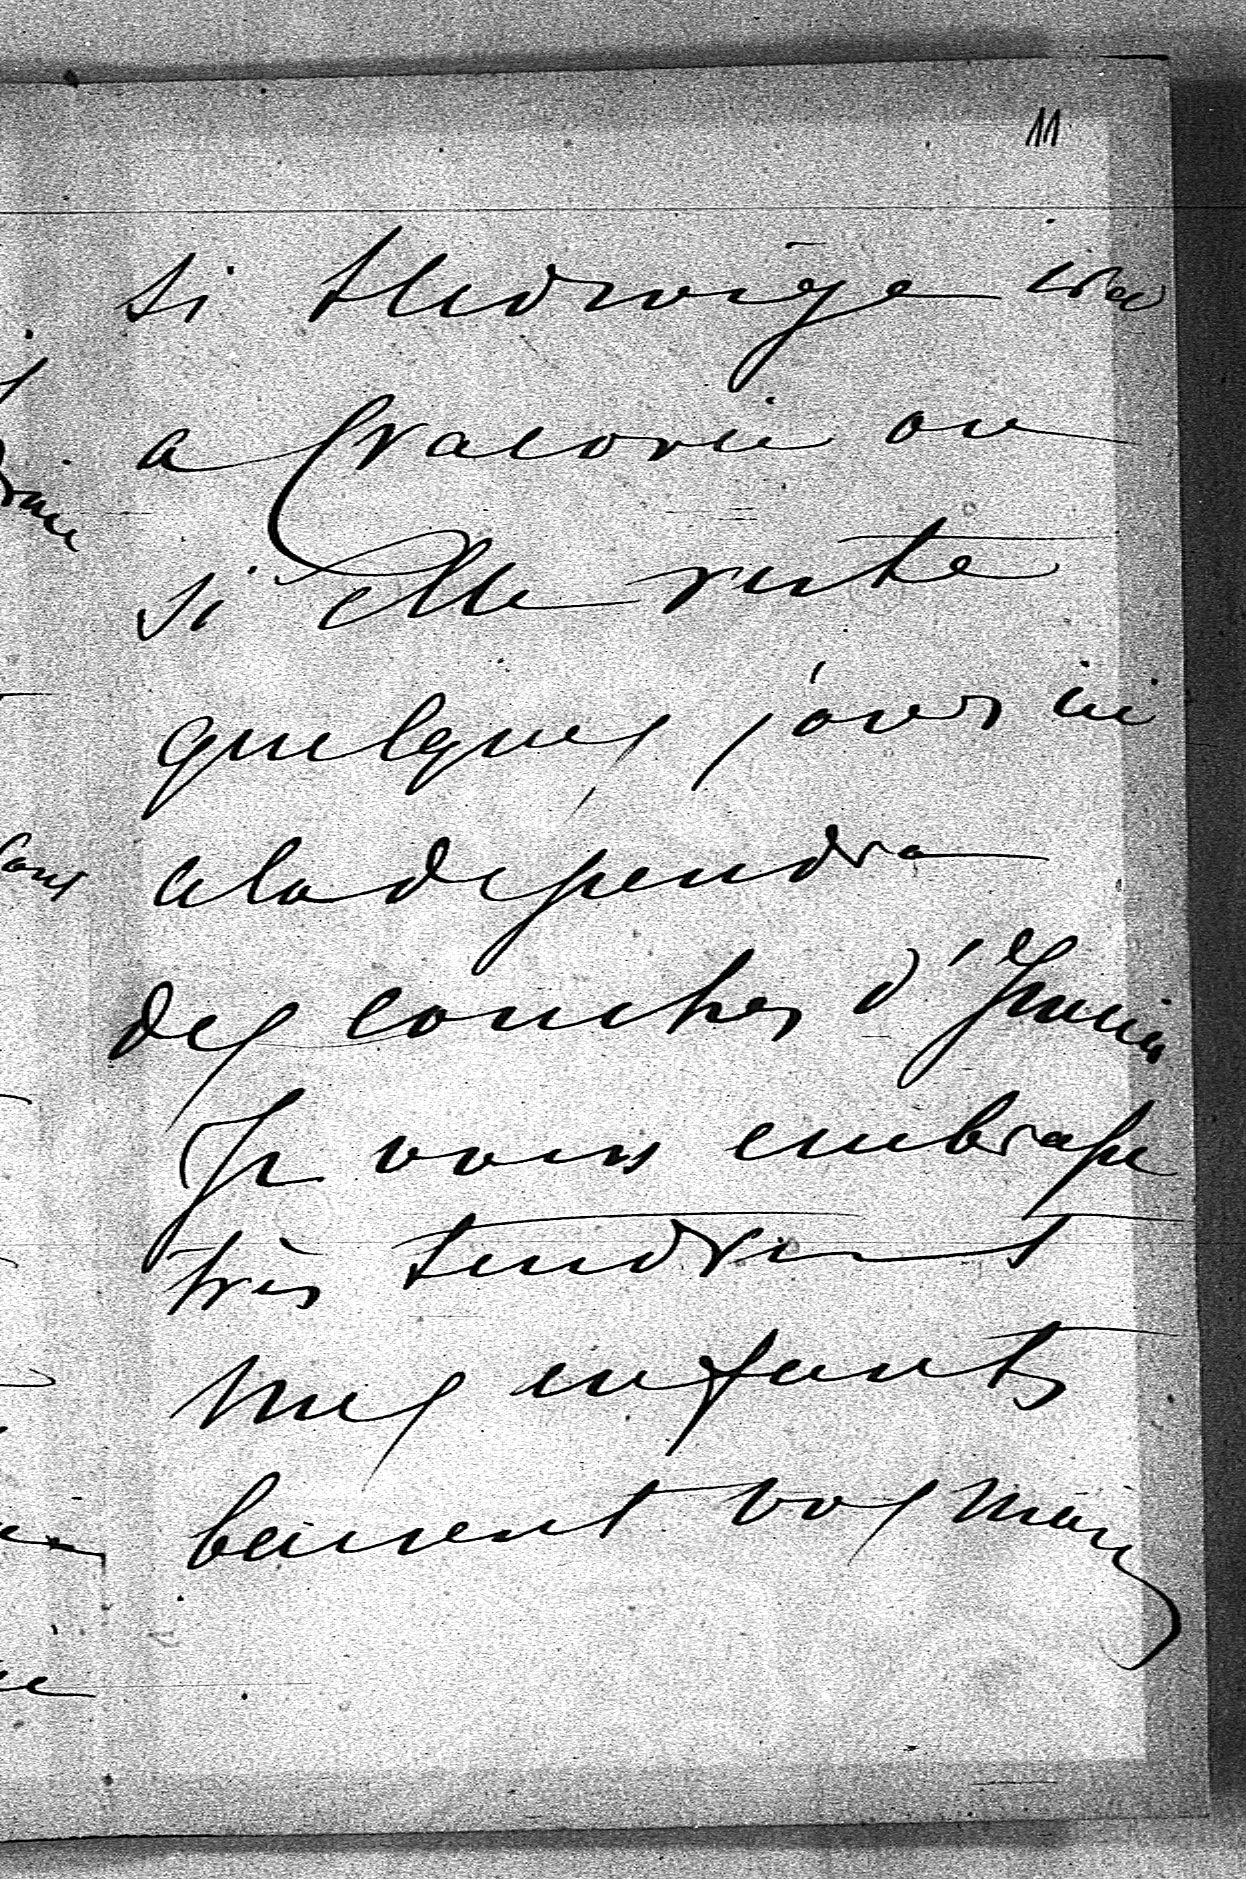 11
si Hedwige ira
a Cracovie ou
si elle reste
quelques jours ici
cela dépendra
des couches d'Irenia
Je vous embrasse
très tendrement
Mes enfants
baisent vos mains